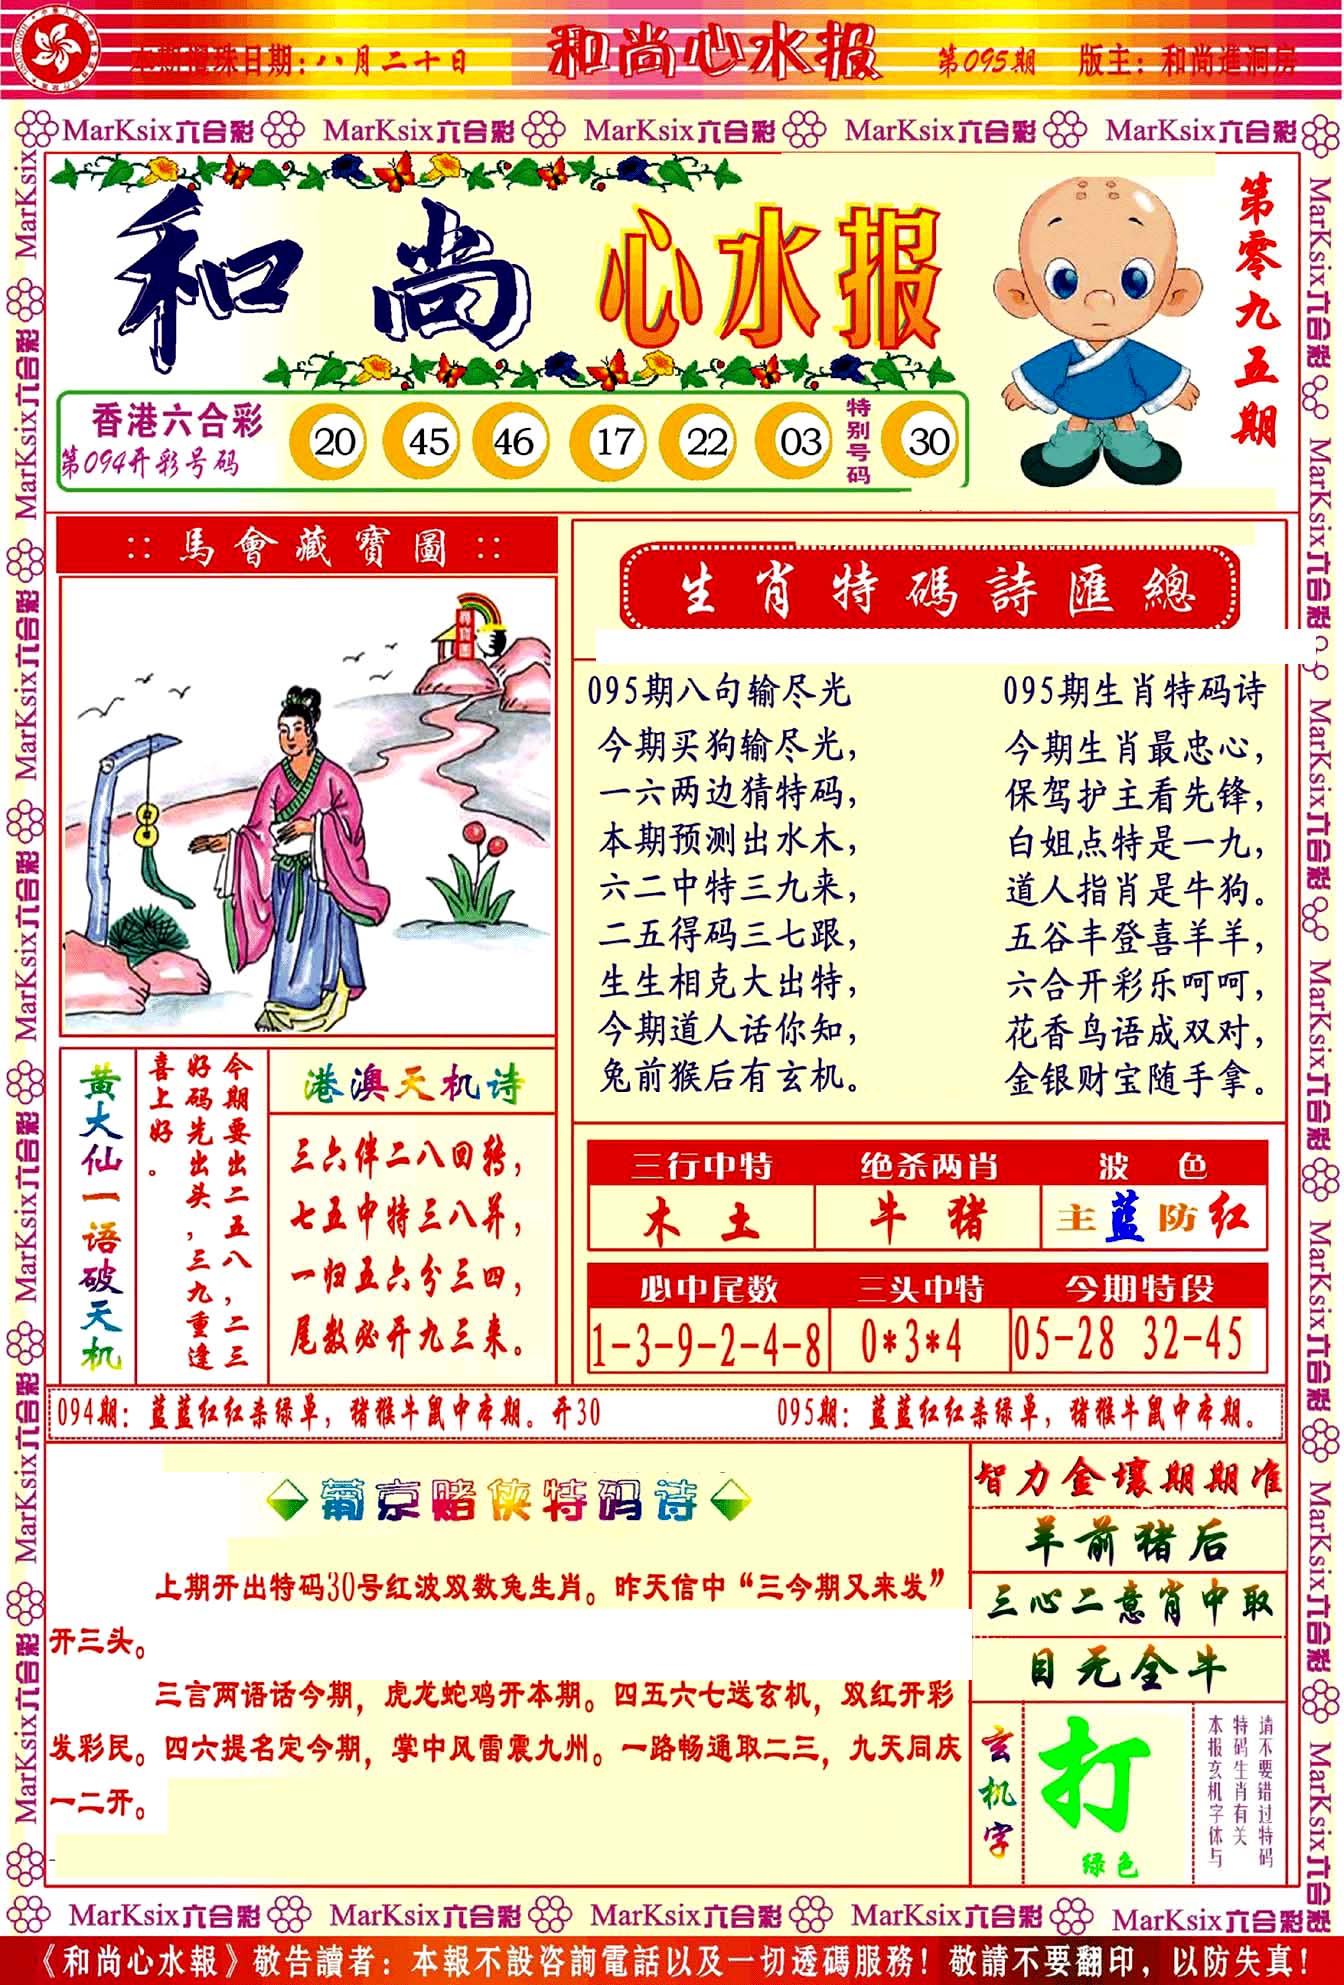 本期攪珠日期:八月二十日
和尚心水报
第095期
版主：和尚進洞房
MarKsix六合彩 MarKsix六合彩 MarKsix六合彩 MarKsix六合彩 MarKsix六合彩
和尚心水报
第零九五期
香港六合彩
第094开彩号码
20 45 46 17 22 03
特别号码
30
::馬會藏寶圖::
生肖特碼詩匯總
095期八句输尽光
今期买狗输尽光，
一六两边猜特码，
本期预测出水木，
六二中特三九来，
二五得码三七跟，
生生相克大出特，
今期道人话你知，
兔前猴后有玄机。
095期生肖特码诗
今期生肖最忠心，
保驾护主看先锋，
白姐点特是一九，
道人指肖是牛狗。
五谷丰登喜羊羊，
六合开彩乐呵呵，
花香鸟语成双对，
金银财宝随手拿。
黄大仙一语破天机
今期要出二五八，二三
好码先出头，三九重逢
喜上好。
港澳天机诗
三六伴二八回转，
七五中特三八并，
一归五六分三四，
尾数必开九三来。
三行中特 绝杀两肖 波色
木土 牛猪 主蓝防红
必中尾数 三头中特 今期特段
1-3-9-2-4-8 0*3*4 05-28 32-45
094期：蓝蓝红红杀绿单，猪猴牛鼠中本期。开30
095期：蓝蓝红红杀绿单，猪猴牛鼠中本期。
葡京赌侠特码诗
上期开出特码30号红波双数兔生肖。昨天信中“三今期又来发”
开三头。
三言两语话今期，虎龙蛇鸡开本期。四五六七送玄机，双红开彩
发彩民。四六提名定今期，掌中风雷震九州。一路畅通取二三，九天同庆
一二开。
智力金壤期期准
羊前猪后
三心二意肖中取
目无全牛
玄机字
打
绿色
请不要错过特码
特码生肖有关
本报玄机字体与
MarKsix六合彩 MarKsix六合彩 MarKsix六合彩 MarKsix六合彩 MarKsix六合彩
《和尚心水報》敬告讀者：本報不設咨詢電話以及一切透碼服務！敬請不要翻印，以防失真！